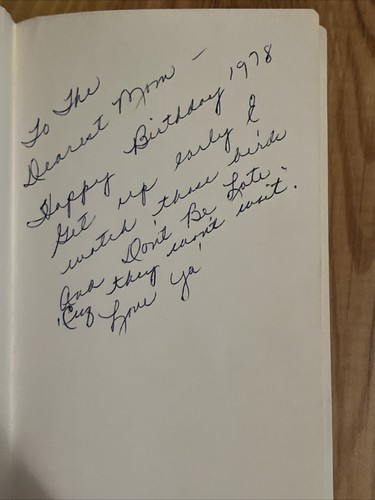 To The
Dearest Mom -
Happy Birthday 1978
Get up early &
watch those birds
And Don't Be Late.
'Cuz they won't wait.
Love Ya